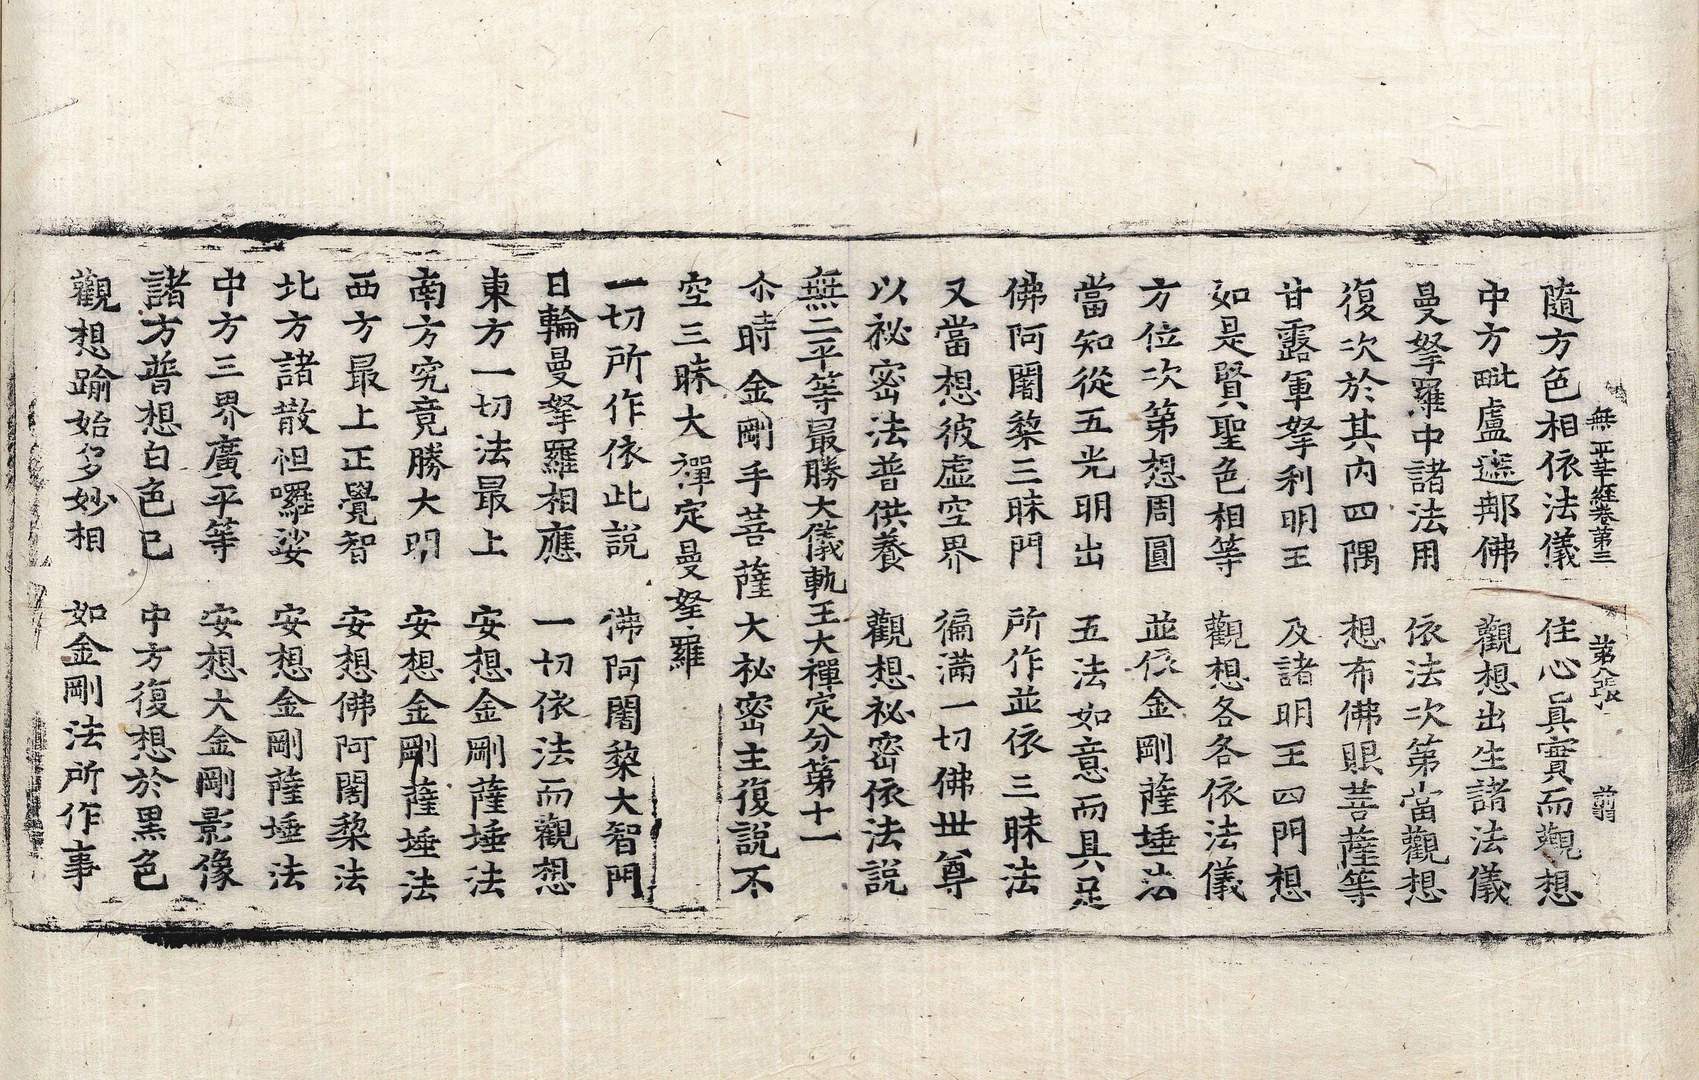 無二平等経卷第三 第八張 前
隨方色相依法儀 住心眞實而觀想
中方毗盧遮那佛 觀想出生諸法儀
曼拏羅中諸法用 依法次第當觀想
復次於其內四隅 想布佛眼菩薩等
甘露軍拏利明王 及諸明王四門想
如是賢聖色相等 觀想各各依法儀
方位次第想周圓 並依金剛薩埵法
當知從五光明出 五法如意而具足
佛阿闍棃三昧門 所作並依三昧法
又當想彼虛空界 徧滿一切佛世尊
以祕密法普供養 觀想祕密依法説
無二平等最勝大儀軌王大禪定分第十一
尒時金剛手菩薩大祕密主復説不
空三昧大禪定曼拏羅
一切所作依此説 佛阿闍棃大智門
日輪曼拏羅相應 一切依法而觀想
東方一切法最上 安想金剛薩埵法
南方究竟勝大明 安想金剛薩埵法
西方最上正覺智 安想佛阿闍棃法
北方諸散怛囉娑 安想金剛薩埵法
中方三界廣平等 安想大金剛影像
諸方普想白色已 中方復想於黒色
觀想踰始多妙相 如金剛法所作事